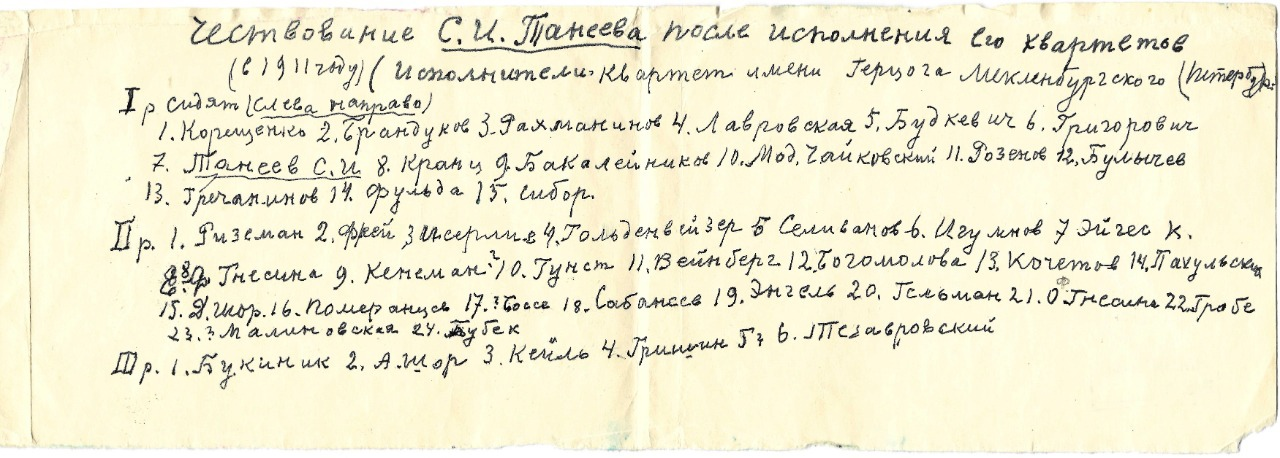 Чествование С. И. Танеева после исполнения его квартетов
(в 1911 году) (Исполнители-квартет имени Герцога Мекленбургского (Петербур.
I р сидят (слева направо)
1. Корещенко 2. Брандуков 3. Рахманинов 4. Лавровская 5. Будкевич 6. Григорович
7. Танеев С. И. 8. Кранц 9. Бакалейников 10. Мод. Чайковский 11. Розенов 12. Булычев
13. Гречанинов 14. Фульда 15. Сибор.
II р. 1. Риземан 2. Фрей 3. 4. Гольденвейзер 5 Селиванов 6. Игумнов 7 Эйгес К.
8. Гнесина 9. Кенеман? 10. Гунст 11. Вейнберг 12. Богомолова 13. Кочетов 14. Пахульский
15. Д. Шор. 16. Померанцев 17. ? Боссе 18. Сабанеев 19. Энгель 20. Гельман 21. О. Гнесина 22. Гробе
23. ? Малиновская 24. Бубек
III р. 1. Букиник 2. А. Шор 3. Кейль 4. Гришин 5 ? 6. Тезавровский